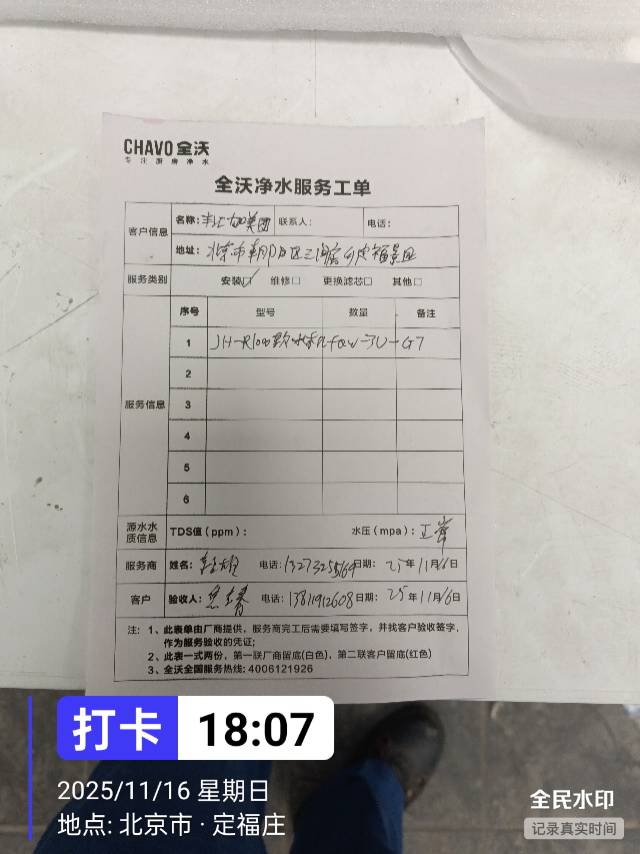 CHAVO 全沃
专注厨房净水
全沃净水服务工单
客户信息
名称: 丰汇加美团 联系人: 电话:
地址: 北京市朝阳区三间房乡
服务类别 安装☑ 维修□ 更换滤芯□ 其他□
服务信息
序号 型号 数量 备注
1 JH-R100
2
3
4
5
6
源水水质信息 TDS值（ppm）: 水压（mpa）: 正常
服务商 姓名: 电话: 日期: 25年11月16日
客户 验收人: 电话: 13811912608 日期: 25年11月16日
注: 1、此表单由厂商提供，服务商完工后需要填写签字，并找客户验收签字，
作为服务验收的凭证;
2、此表一式两份，第一联厂商留底(白色)，第二联客户留底(红色)
3、全沃全国服务热线: 4006121926
打卡 18:07
2025/11/16 星期日
地点: 北京市 · 定福庄
全民水印
记录真实时间